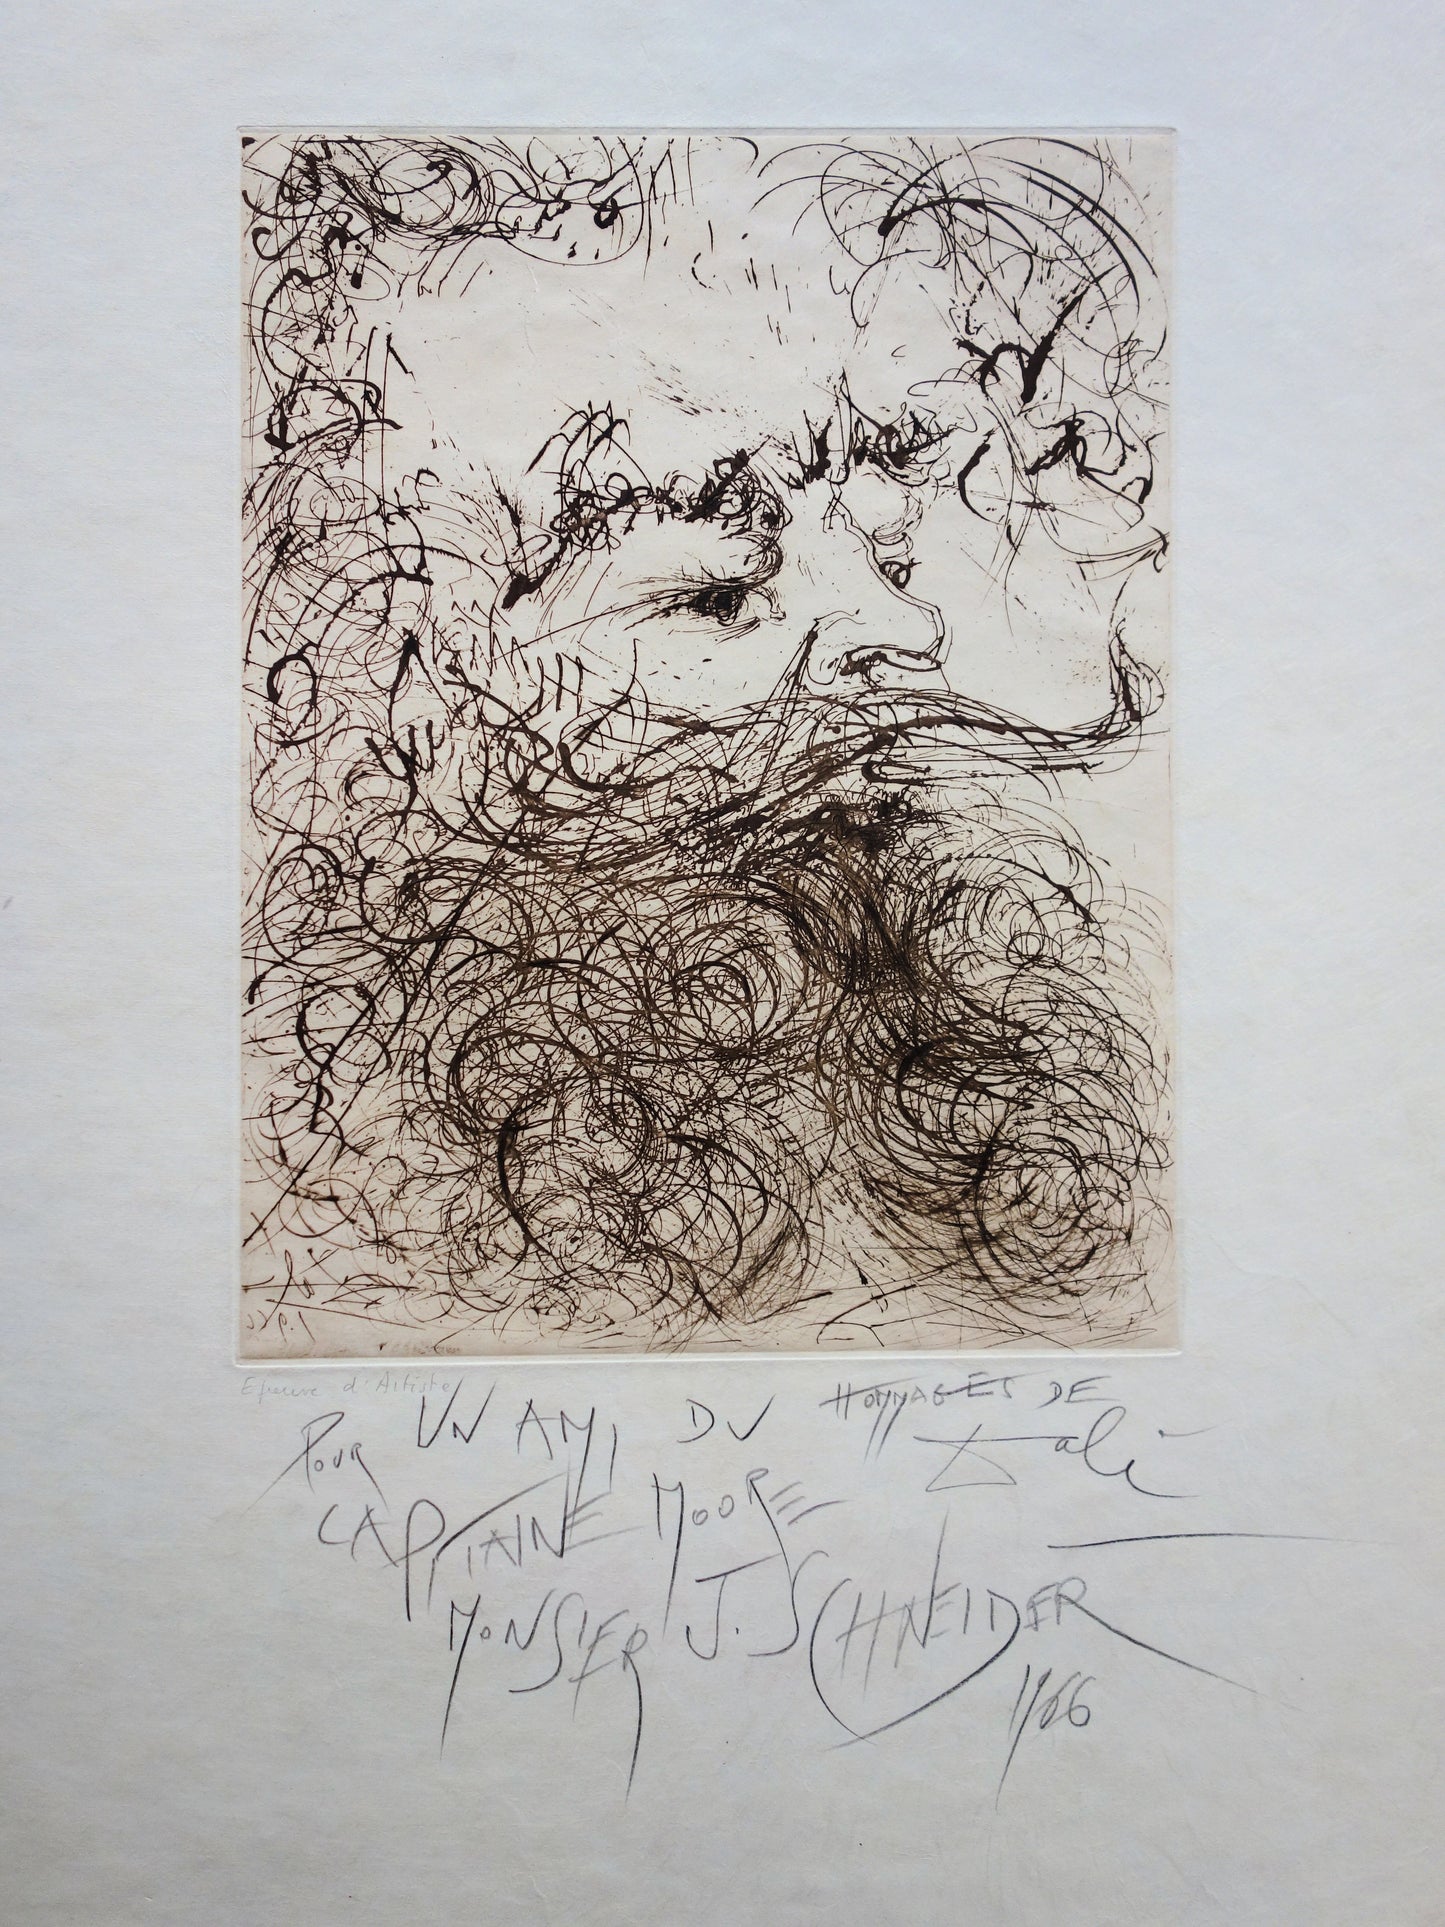 Epreuve d'Artiste
POUR UN AMI DU
CAPITAINE MOORE
MONSIER J. SCHNEIDER
1966
HOMMAGES DE
Dali